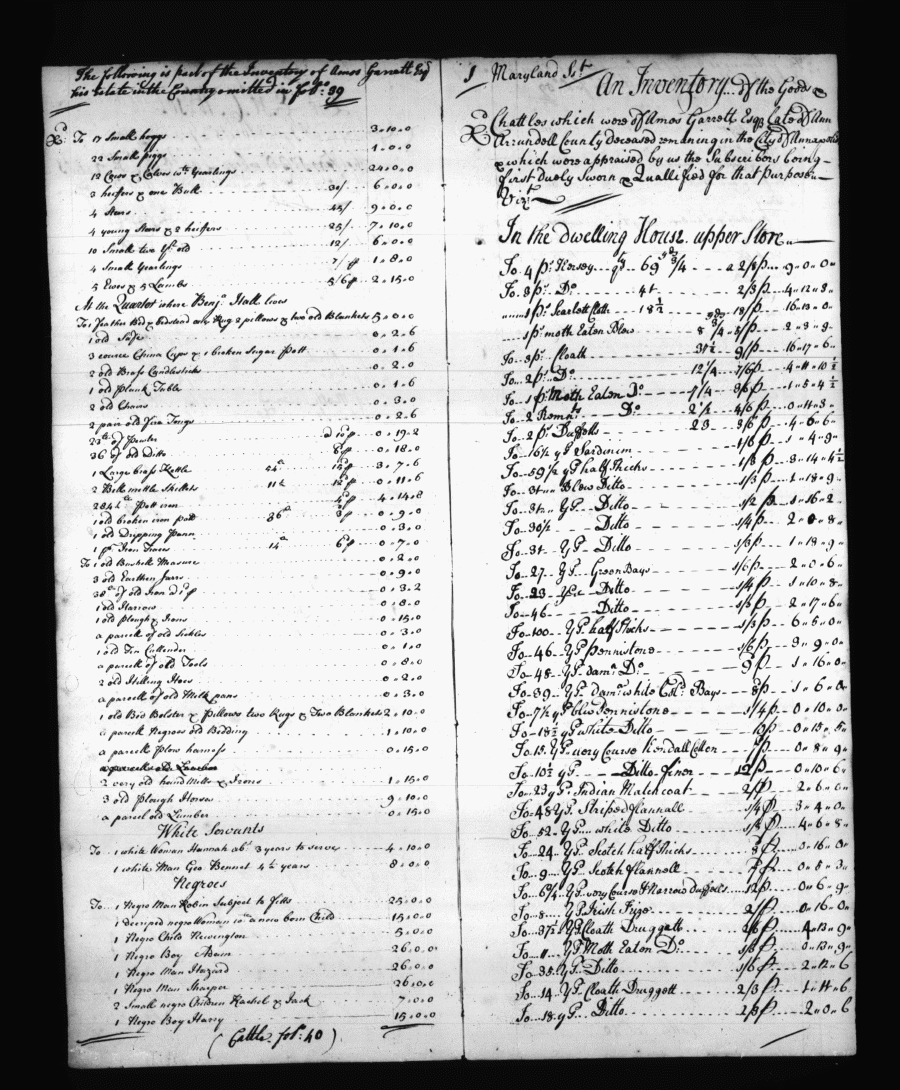 The following is part of the Inventory of Amos Garrett Esqr
his Estate in the Country omitted in fol: 39
To 17 Small hoggs 3.10.0
22 Small piggs 1.0.0
12 Cows & Calves wth Yearlings 24.0.0
2 heifers & one Bull 30/ 6.0.0
4 Stears 45/ 9.0.0
4 young Stears & 2 heifers 25/ 7.10.0
10 Small two Yr old 12/ 6.0.0
4 Small Yearlings 7/ p 1.8.0
5 Ewes & 5 Lambs 5/6 p 2.15.0
At the Quarter where Benj. Hall lives
To 1 feather Bed & bedstead one Rug 2 pillows & two old Blankets 5.0.0
1 old Safe 0.2.6
3 course China Cups & 1 broken Sugar Pott 0.1.6
2 old Brass Candlesticks 0.2.0
1 old plank Table 0.1.6
2 old Chairs 0.3.0
2 pair old Fire Tongs 0.2.6
23 lb of Pewter d 10 p 0.19.2
36 of old ditto 6 p 0.18.0
1 Large brass Kettle 54 lb 15 p 3.7.6
2 Bell mettle Skillets 11 lb 12 p 0.11.6
284 ½ lb Pott iron 4 p 4.14.8
1 old broken iron pott 36 lb 3 p 0.9.0
1 old Dripping Pann 0.3.0
1 pr Iron Traces 14 lb 6 p 0.7.0
To 1 old Bushell Measure 0.2.0
3 old Earthen Jarrs 0.9.0
38 lb of old Iron d 1 p 0.3.2
1 old Harrow 0.8.0
1 old plough & Irons 0.15.0
a parcell of old Sickles 0.3.0
1 old Tin Cullender 0.1.0
a parcell of old Tools 0.8.0
2 old Hilling Hoes 0.2.0
a parcell of old Milk pans 0.3.0
1 old Bed Bolster & Pillows two Rugs & Two Blankets 2.10.0
a parcell Negroes old Bedding 1.10.0
a parcell Plow harness 0.15.0
2 very old hand Mills & Irons 1.15.0
3 old Plough Horses 9.10.0
a parcel old Lumber 0.15.0
White Servants
To 1 white Woman Hannah abt 3 years to serve 4.10.0
1 white Man Geo Bennet 4 ½ years 8.0.0
Negroes
To 1 Negro Man Robin Subject to Fitts 25.0.0
1 decriped negro Woman wth a new born Child 15.0.0
1 Negro Child Newington 5.0.0
1 Negro Boy Adam 26.0.0
1 Negro Man Hazard 26.0.0
1 Negro Man Sharper 26.0.0
2 Small negro Children Rachel & Jack 7.0.0
1 Negro Boy Harry 15.0.0
(Cattle fol: 40)
1 Maryland Sst An Inventory of the Goods
Chattles which were of Amos Garrett Esqr Late of Ann
Arrundell County deceased remaining in the City of Annapolis
& which were appraised by us the Subscribors being
first duely Sworn & Quallified for that purpose
Vizt
In the dwelling House upper Store
To 4 ps Kersey qt 69 3/4 a 2/8 p 9.0.0
To 3 ps Do 41 2/3 p 4.12.3
1 ps Scarlott Cloth 18 ½ 18/ p 16.13.0
1 ps moth Eaten Blew 8 3/4 5/ p 2.3.9
To 3 ps Cloath 37 ½ 9/ p 16.17.6
To 2 ps Do 12 1/4 7/6 p 4.11.10 ½
To 1 ps Moth Eaten Do 7 1/4 3/6 p 1.5.4 ½
To 2 Remnts Do 2 ½ 4/6 p 0.11.3
To 2 ps Duffells 23 3/6 p 4.6.6
To 16 ½ yds Sardinim 1/6 p 1.4.9
To 59 ½ yds half thicks 1/3 p 3.14.4 ½
To 31 Blew Ditto 1/3 p 1.18.9
To 31 yds Ditto 1/2 p 1.16.2
To 30 ½ Ditto 1/4 p 2.0.8
To 31 yds Ditto 1/3 p 1.18.9
To 27 yds Green Bays 1/6 p 2.0.6
To 23 yds Ditto 1/4 p 1.10.8
To 46 Ditto 1/3 p 2.17.6
To 100 yds half thicks 1/3 p 6.5.0
To 46 yds pennistone 1/6 p 3.9.0
To 48 yds dama Do 9 p 1.16.0
To 39 yds dama white Cold Bays 8 p 1.6.0
To 7 ½ yds blew Pennistone 1/4 p 0.10.0
To 18 ½ yds white Ditto 10 p 0.15.5
To 15 yds very Course Kendall Cotten 7 p 0.8.9
To 10 ½ yds Ditto finer 12 p 0.10.6
To 23 yds Indian Matchcoat 2/ p 2.6.0
To 48 yds Striped flannall 1/4 p 3.4.0
To 52 yds white Ditto 1/8 p 4.6.8
To 24 yds Scotch half thicks 8 p 0.16.0
To 9 yds Scotch flannell 7 p 0.5.3
To 6 3/4 yds very Course & Narrow duffells 12 p 0.6.9
To 8 yds Irish Frize 2/ p 0.16.0
To 37 ½ yds Cloath Druggett 2/6 p 4.13.9
To 11 yds Moth Eaten Do 1/3 p 0.13.9
To 35 yds Ditto 1/6 p 2.12.6
To 14 yds Cloath Druggett 2/3 p 1.11.6
To 18 yds Ditto 2/3 p 2.0.6